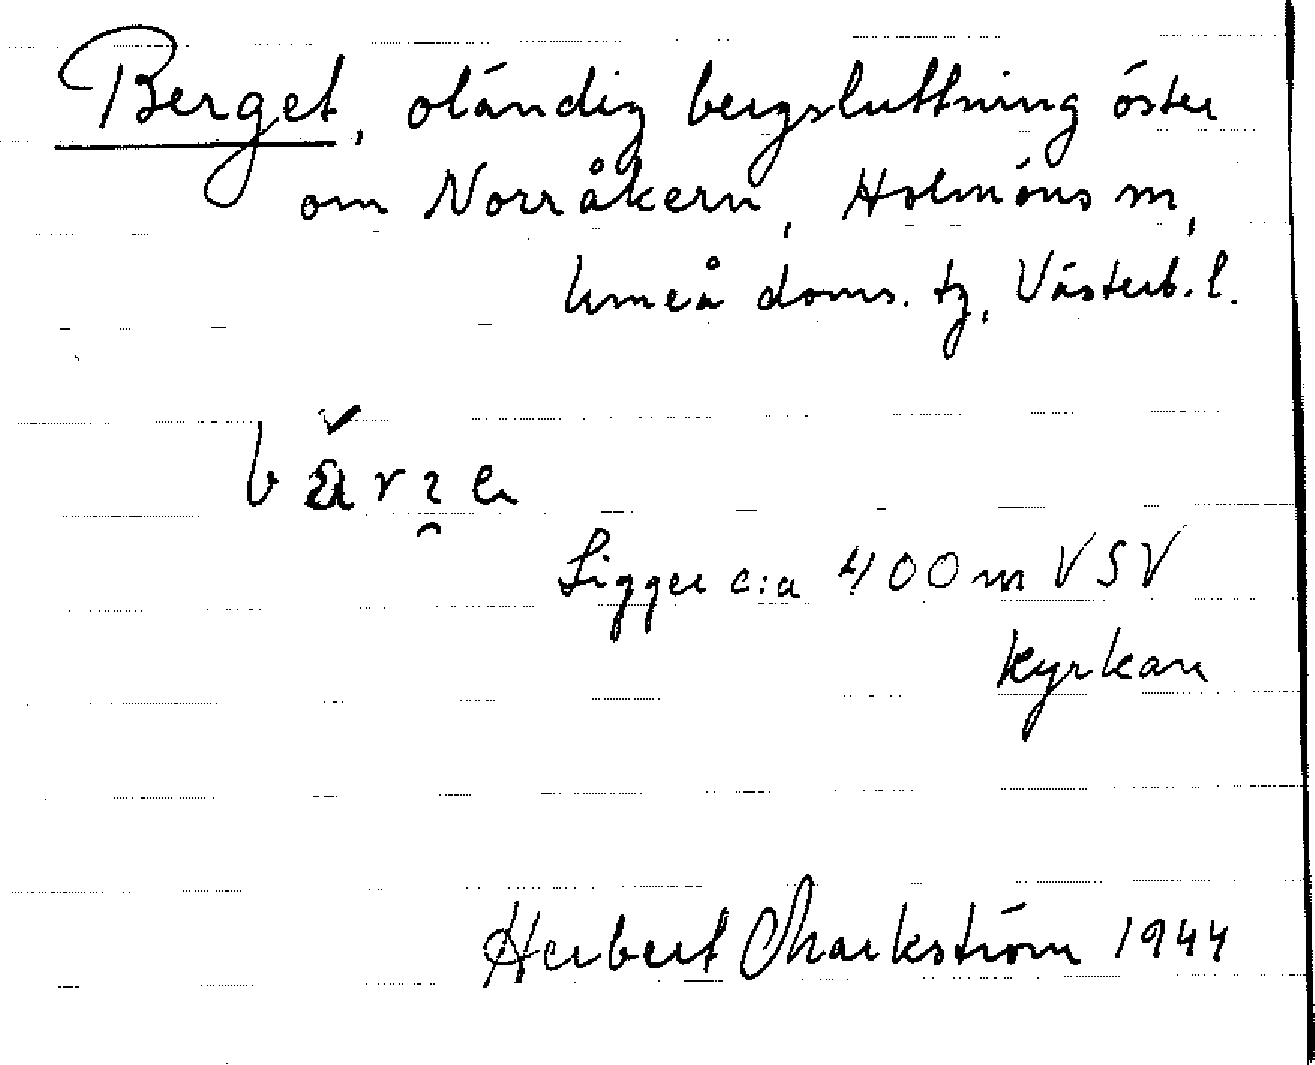 Berget, oländig bergsluttning öster
om Norråkern, Holmöns sn,
Umeå doms. tg, Västerb. l.
Ligger c:a 400 m VSV
kyrkan
Herbert Markström 1944